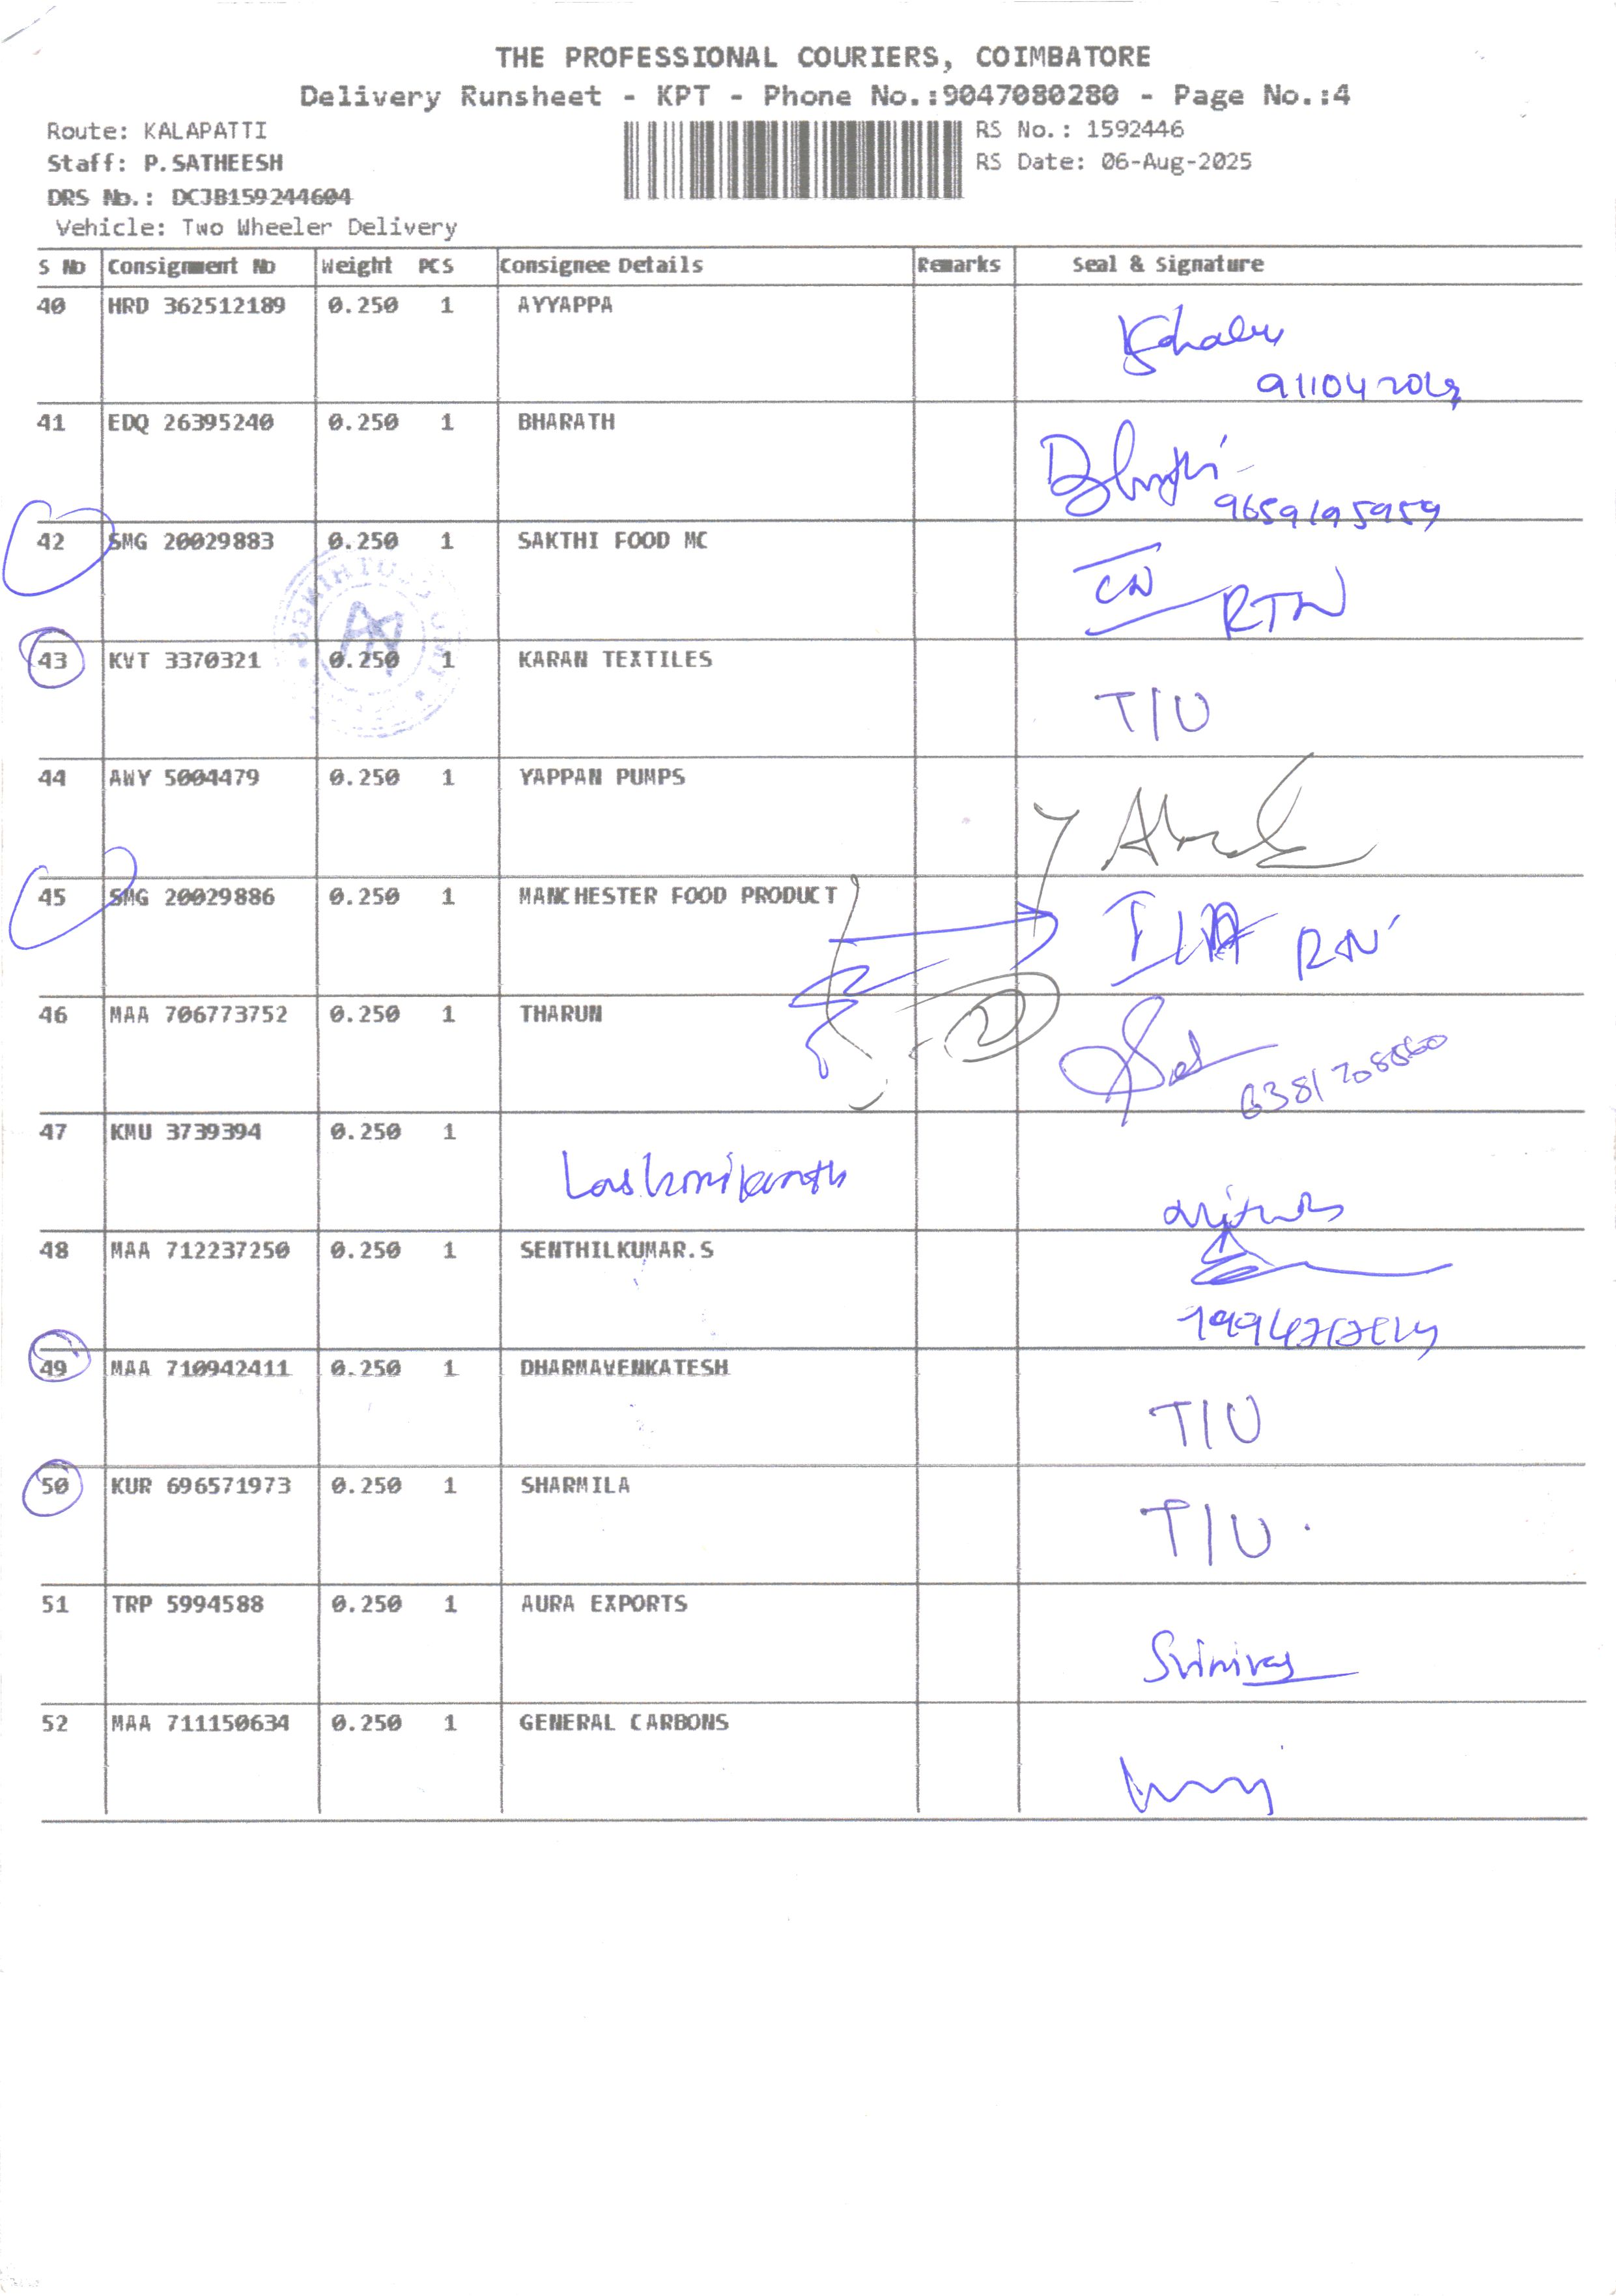 THE PROFESSIONAL COURIERS, COIMBATORE
Delivery Runsheet - KPT - Phone No.:9047080280 - Page No.:4
Route: KALAPATTI
RS No.: 1592446
Staff: P.SATHEESH
RS Date: 06-Aug-2025
DRS No.: DCJB159244604
Vehicle: Two Wheeler Delivery
S No Consignment No Weight PCS Consignee Details Remarks Seal & Signature
40 HRD 362512189 0.250 1 AYYAPPA
41 EDQ 26395240 0.250 1 BHARATH
9659195959
42 SMG 20029883 0.250 1 SAKTHI FOOD MC
RTN
43 KVT 3370321 0.250 1 KARAN TEXTILES
T/U
44 AWY 5004479 0.250 1 YAPPAN PUMPS
45 SMG 20029886 0.250 1 MANCHESTER FOOD PRODUCT
46 MAA 706773752 0.250 1 THARUN
47 KMU 3739394 0.250 1
48 MAA 712237250 0.250 1 SENTHILKUMAR.S
49 MAA 710942411 0.250 1 DHARMAVENKATESH
T/U
50 KUR 696571973 0.250 1 SHARMILA
T/U
51 TRP 5994588 0.250 1 AURA EXPORTS
Srinivas
52 MAA 711150634 0.250 1 GENERAL CARBONS